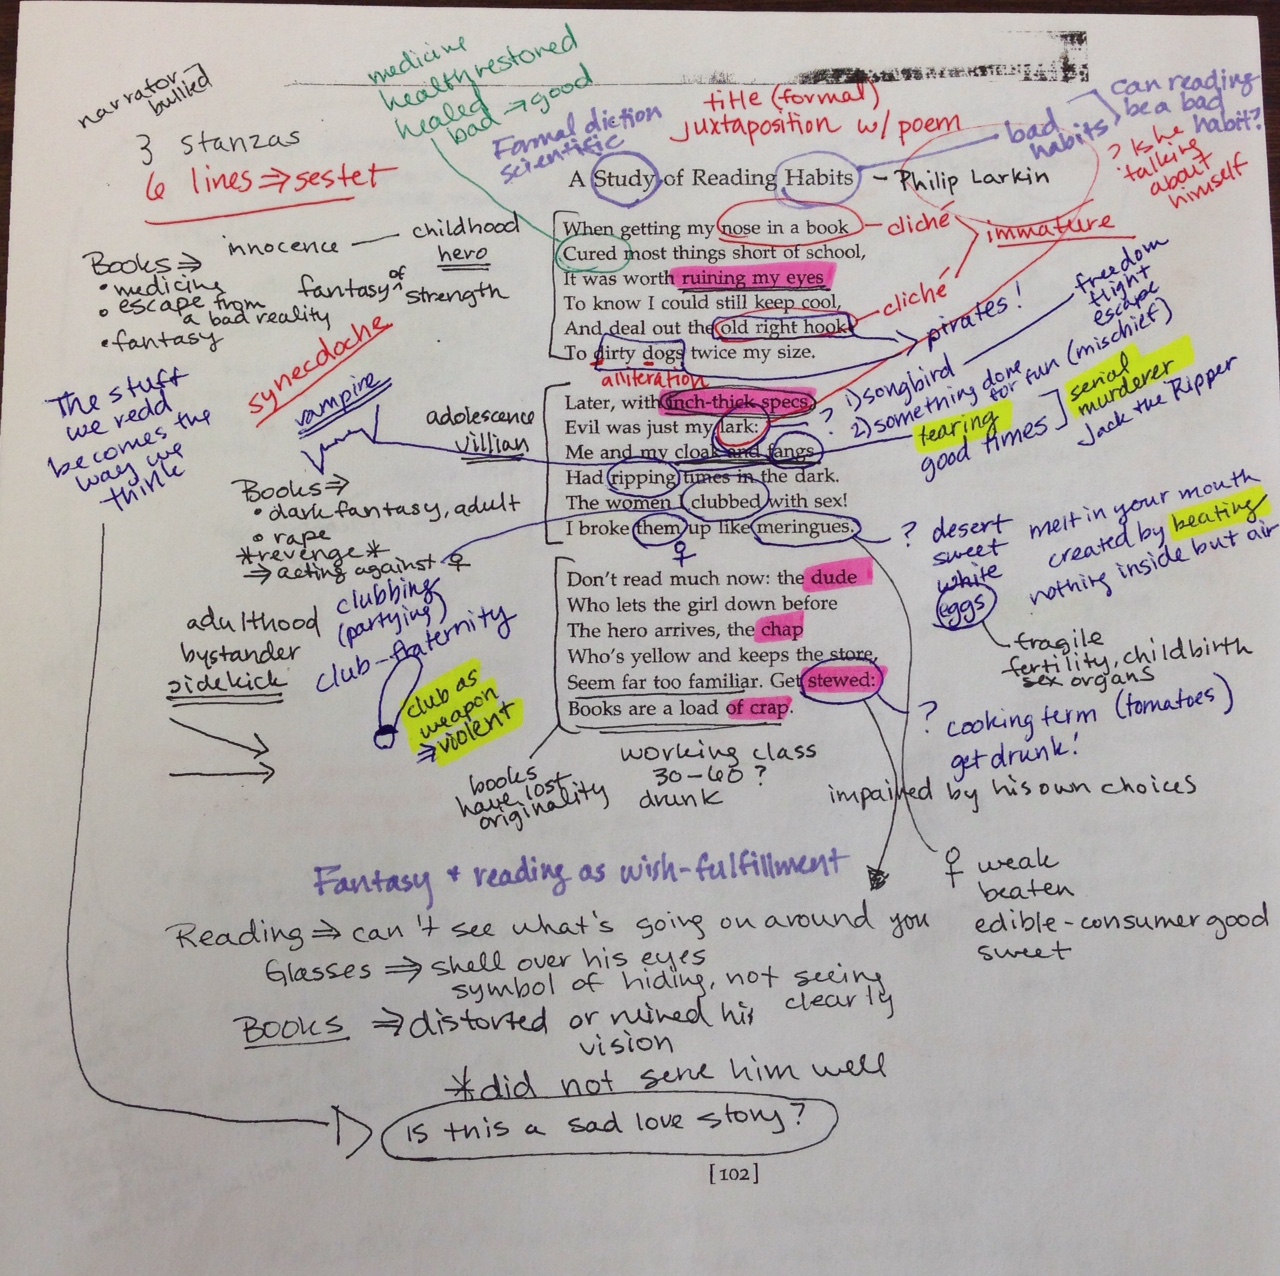 narrator
bullied
3 stanzas
6 lines ⇒ sestet
medicine
health restored
healed
bad → good
Formal diction
scientific
title (formal)
juxtaposition w/ poem
bad
habits
can reading
be a bad
habit?
? Is he
talking
about
himself
A Study of Reading Habits - Philip Larkin
When getting my nose in a book
Cured most things short of school,
It was worth ruining my eyes
To know I could still keep cool,
And deal out the old right hook
To dirty dogs twice my size.
cliché
immature
cliché
alliteration
pirates!
Books ⇒
• medicine
• escape from
a bad reality
• fantasy
innocence — childhood
hero
fantasy of strength
synecdoche
vampire
The stuff
we redd
becomes the
way we
think
adolescence
villian
Later, with inch-thick specs,
Evil was just my lark:
Me and my cloak and fangs
Had ripping times in the dark.
The women I clubbed with sex!
I broke them up like meringues.
♀
? 1) songbird
2) something done
for fun (mischief)
freedom
flight
escape
tearing
good times
serial
murderer
Jack the Ripper
Books ⇒
• dark fantasy, adult
• rape
*revenge*
⇒ acting against ♀
clubbing
(partying)
club-fraternity
club as
weapon
⇒ violent
? desert
sweet
white
eggs
melt in your mouth
created by beating
nothing inside but air
fragile
fertility, childbirth
sex organs
adulthood
bystander
sidekick
Don't read much now: the dude
Who lets the girl down before
The hero arrives, the chap
Who's yellow and keeps the store,
Seem far too familiar. Get stewed:
Books are a load of crap.
? cooking term (tomatoes)
get drunk!
impaired by his own choices
books
have lost
originality
working class
30-60?
drunk
♀ weak
beaten
edible-consumer good
sweet
Fantasy + reading as wish-fulfillment
Reading ⇒ can't see what's going on around you
Glasses ⇒ shell over his eyes
symbol of hiding, not seeing
clearly
Books ⇒ distorted or ruined his
vision
*did not serve him well
is this a sad love story?
[102]